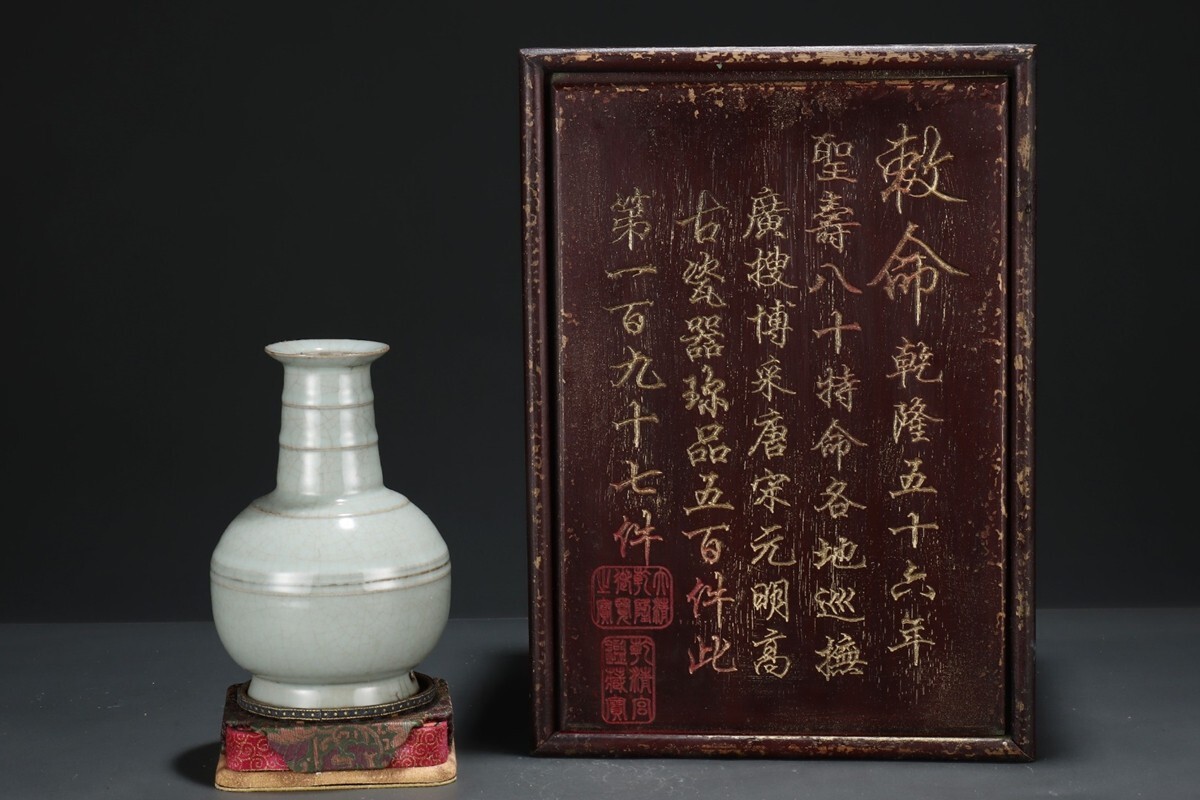 敕命乾隆五十六年
聖壽八十特命各地巡撫
廣搜博采唐宋元明高
古瓷器珎品五百件此
第一百九十七件
大清
乾隆
御覽
之寶
乾清宮
鑑藏寶